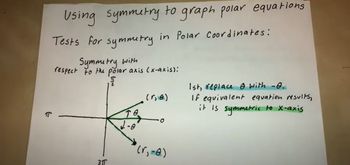 Using symmetry to graph polar equations
Tests for symmetry in Polar Coordinates:
Symmetry with
respect to the polar axis (x-axis):
π
2
(r, θ)
1st, replace θ with -θ.
If equivalent equation results,
it is symmetric to x-axis
θ
π
-θ
0
(r, -θ)
3π